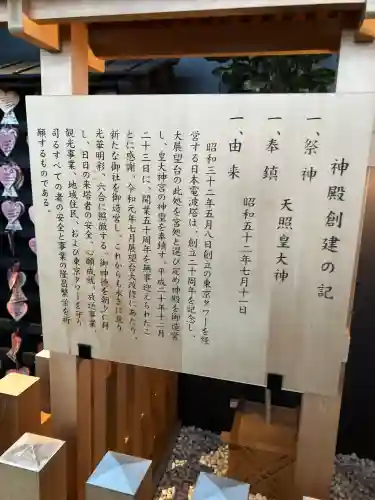 神殿創建の記
一、祭神
天照皇大神
一、奉鎮
昭和五十二年七月十一日
一、由来
昭和三十二年五月八日創立の東京タワーを経
営する日本電波塔は、創立二十周年を記念し、
大展望台の此処を宮処と選び定め神殿を御造営
し、皇大神宮の神霊を奉鎮す。平成二十年十二月
二十三日に、開業五十周年を無事迎えられたこ
とに感謝、令和元年七月展望台大改修にあたり、
新たな御社を御造営し、これからも永きに亘り
光華明彩、六合に照徹する御神徳を朝夕に拝
し、日日の来塔者の安全、心願成就、放送事業、
観光事業、地域住民、および東京タワーを守り
司るすべての者の安全と事業の隆昌繁栄を祈
願するものである。